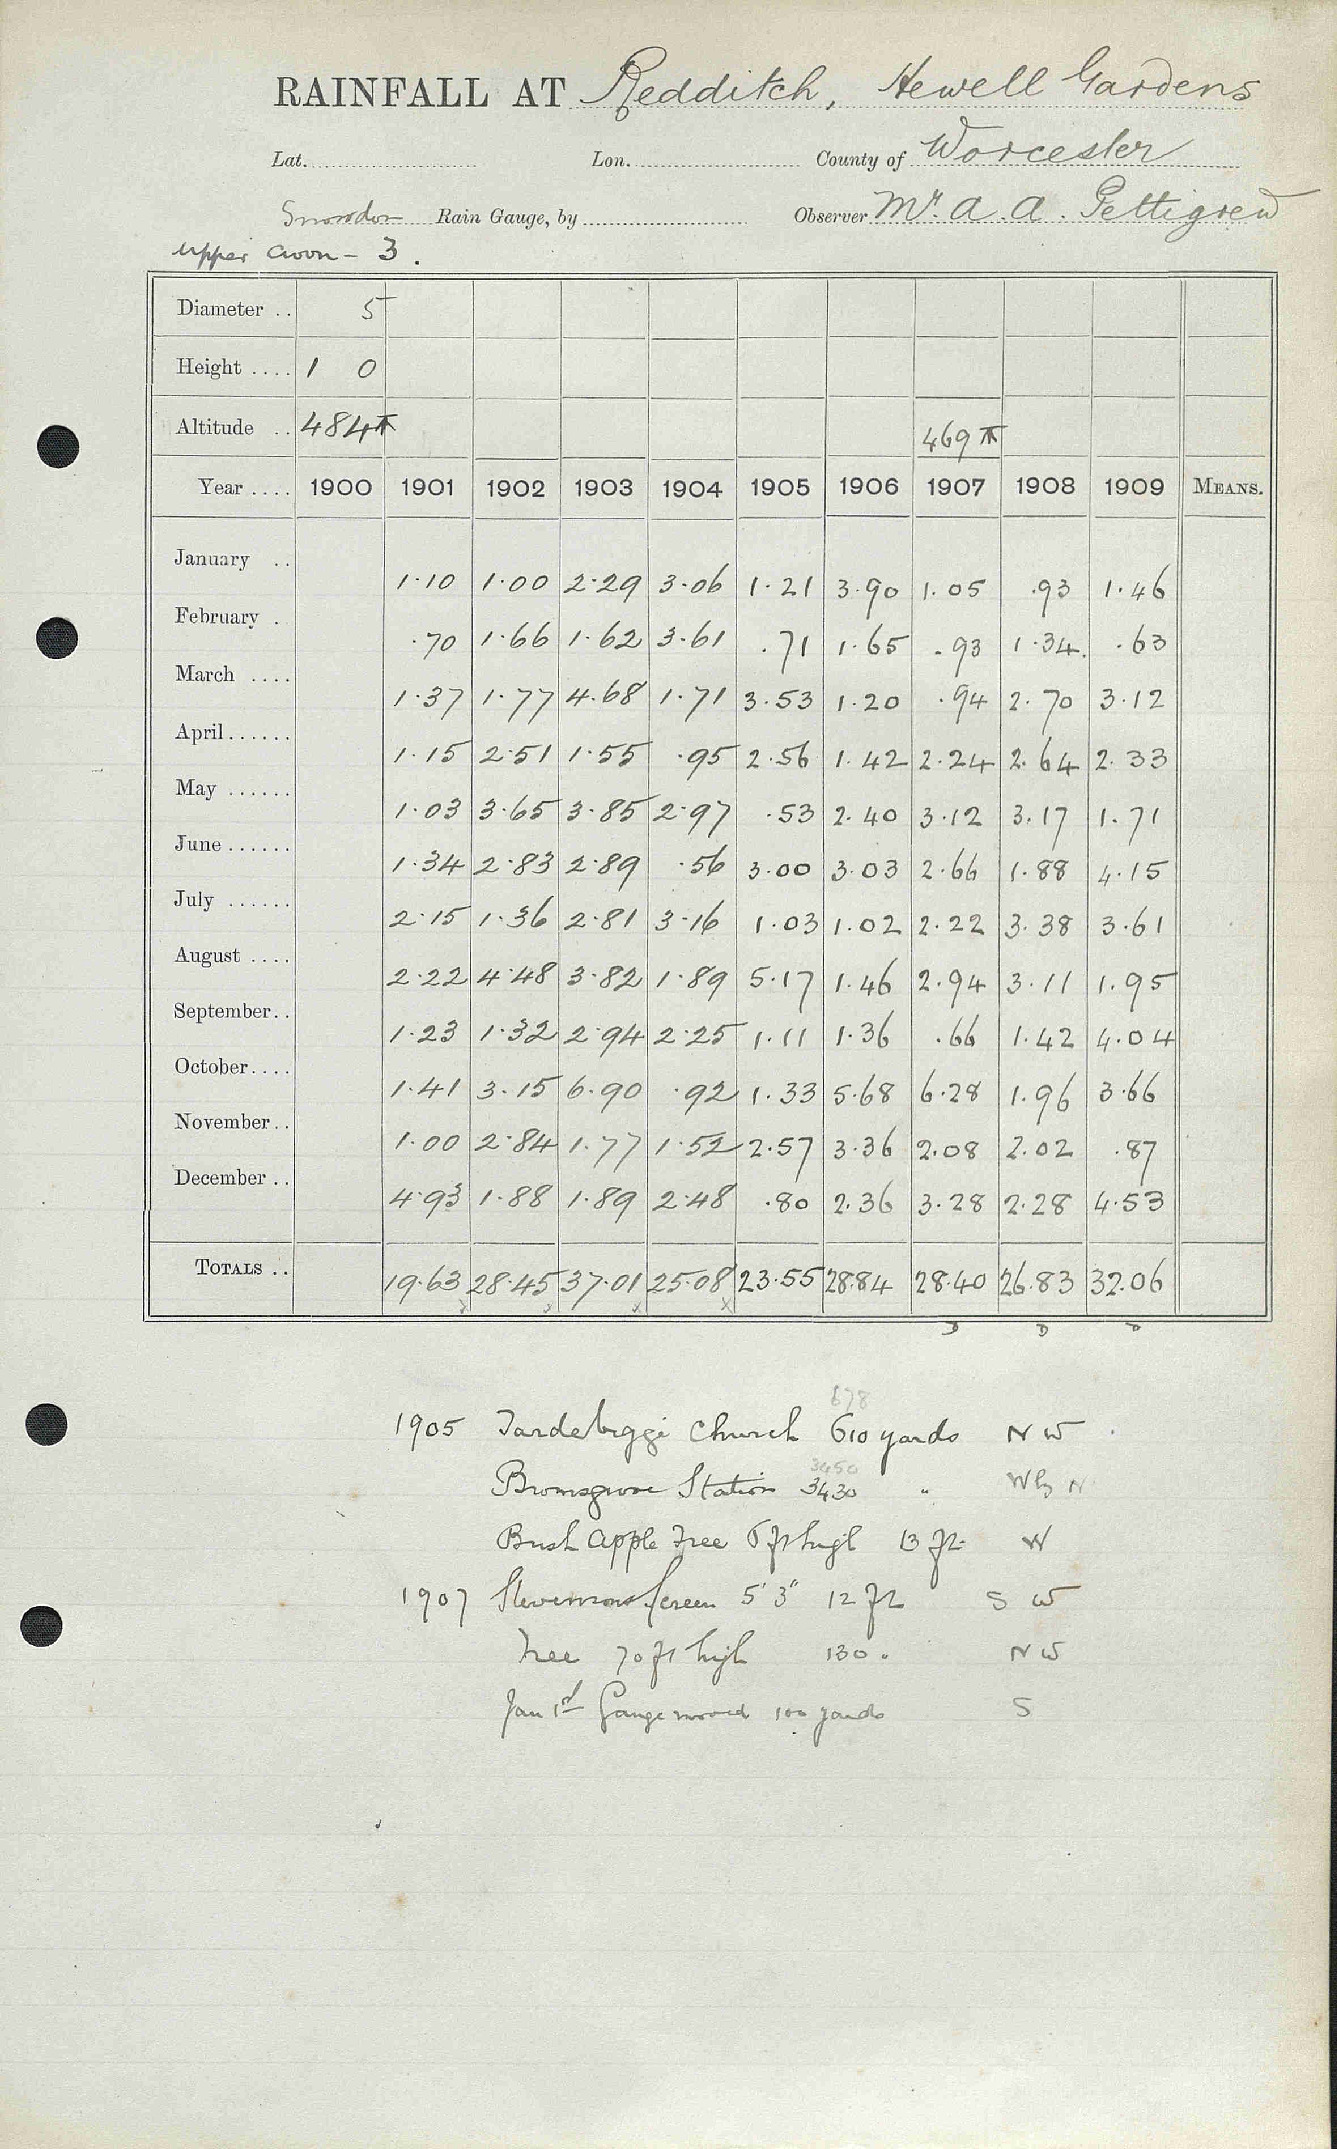 RAINFALL AT Redditch, Hewell Gardens
Lat. Lon. County of Worcester
Snowdon Rain Gauge, by Observer Mr. A. A. Pettigrew
Upper Avon - 3.
Diameter .. 5
Height .... 1 0
Altitude .. 484 469
Year .... 1900 1901 1902 1903 1904 1905 1906 1907 1908 1909 MEANS.
January .. 1.10 1.00 2.29 3.06 1.21 3.90 1.05 .93 1.46
February . .70 1.66 1.62 3.61 .71 1.65 .93 1.34 .63
March .... 1.37 1.77 4.68 1.71 3.53 1.20 .94 2.70 3.12
April...... 1.15 2.51 1.55 .95 2.56 1.42 2.24 2.64 2.33
May ...... 1.03 3.65 3.85 2.97 .53 2.40 3.12 3.17 1.71
June ...... 1.34 2.83 2.89 .56 3.00 3.03 2.66 1.88 4.15
July ...... 2.15 1.36 2.81 3.16 1.03 1.02 2.22 3.38 3.61
August .... 2.22 4.48 3.82 1.89 5.17 1.46 2.94 3.11 1.95
September.. 1.23 1.32 2.94 2.25 1.11 1.36 .66 1.42 4.04
October.... 1.41 3.15 6.90 .92 1.33 5.68 6.28 1.96 3.66
November.. 1.00 2.84 1.77 1.52 2.57 3.36 2.08 2.02 .87
December .. 4.93 1.88 1.89 2.48 .80 2.36 3.28 2.28 4.53
TOTALS .. 19.63 28.45 37.01 25.08 23.55 28.84 28.40 26.83 32.06
x x x x
D D D
678
1905 Tardebigge Church 610 yards N W
3450
Bromsgrove Station 3430 " W by N
Bush Apple Tree 6 ft high 13 ft W
1907 Stevenson Screen 5' 3" 12 ft S W
Tree 70 ft high 130 " N W
Jan 1st Gauge moved 100 yards S